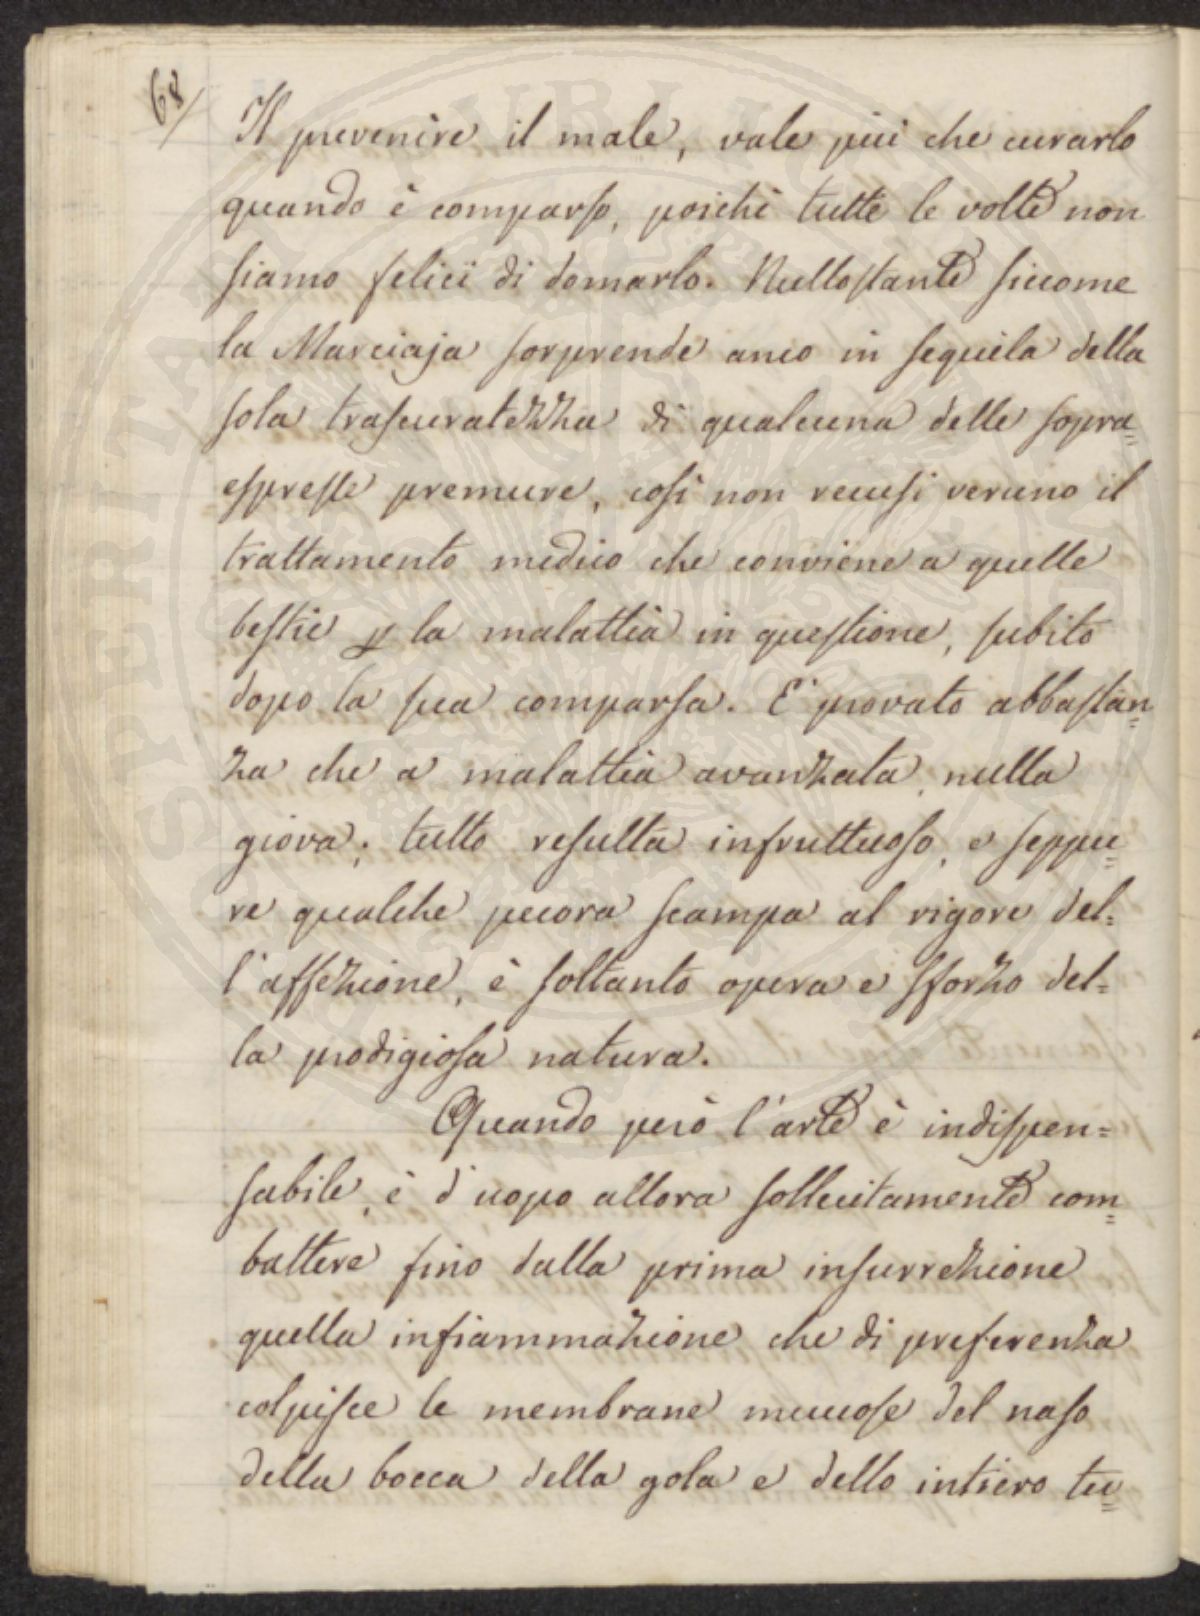 68/
Il prevenire il male, vale più che curarlo
quando è comparso, poichè tutte le volte non
siamo felici di domarlo. Nullostante siccome
la Marciaja sorprende anco in sequela della
sola trascuratezza di qualcuna delle sopra=
espresse premure, così non recusi veruno il
trattamento medico che conviene a quelle
bestie p la malattia in questione, subito
dopo la sua comparsa. E' provato abbastan=
za che a malattia avanzata, nulla
giova; tutto resulta infruttuoso, e seppu=
re qualche pecora scampa al rigore del=
l'affezione, è soltanto opera e sforzo del=
la prodigiosa natura.
Quando però l'arte è indispen=
sabile, è d'uopo allora sollecitamente com=
battere fino dalla prima insurrezione
quella infiammazione che di preferenza
colpisce le membrane mucose del naso
della bocca della gola e dello intiero tu=